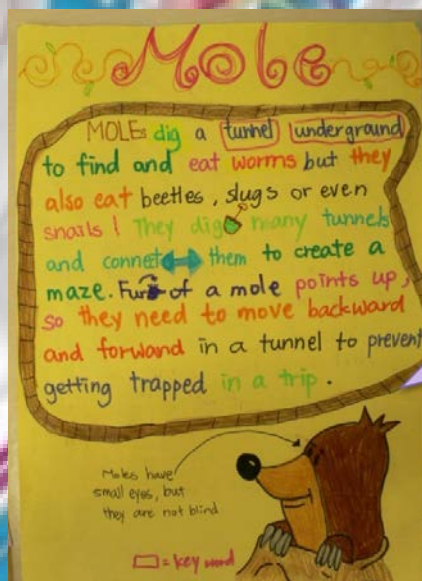 Mole
MOLEs dig a tunnel underground
to find and eat worms but they
also eat beetles, slugs or even
snails! They dig many tunnels
and connect them to create a
maze. Fur of a mole points up,
so they need to move backward
and forward in a tunnel to prevent
getting trapped in a trip.
Moles have
small eyes, but
they are not blind
= key word